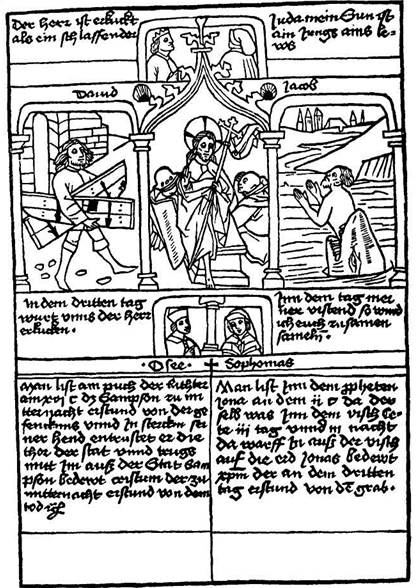 Der herr ist erkuckt
als ein schlaffender
Juda mein Sun ist
ain Jungs ains le=
wos
Dauid
Jacob
in dem dritten tag
wurt unns der herr
erkucken ·
Inn dem tag mei
ner vistend so wird
ich euch zusamen
sameln
· Osee ·
Sophonias
Man list am puch der richter
am xvi c dz Sampson zu mi
ternacht erstund von der ge
fencknus vnnd In stercken sei
ner hend entrustet er die
thor der stat vnnd trugs
mitt Im auß der Stat Sam
pson bedewt cristum der zu
mitternacht erstund von dem
tod
Man list Inn dem propheten
Jona an dem ii c da der
selb was Inn dem visch
te iii tag vnnd iii nacht
da warff In auß der visch
auf die erd Jonas bedewt
xpm der an dem dritten
tag erstund von dē grab ·